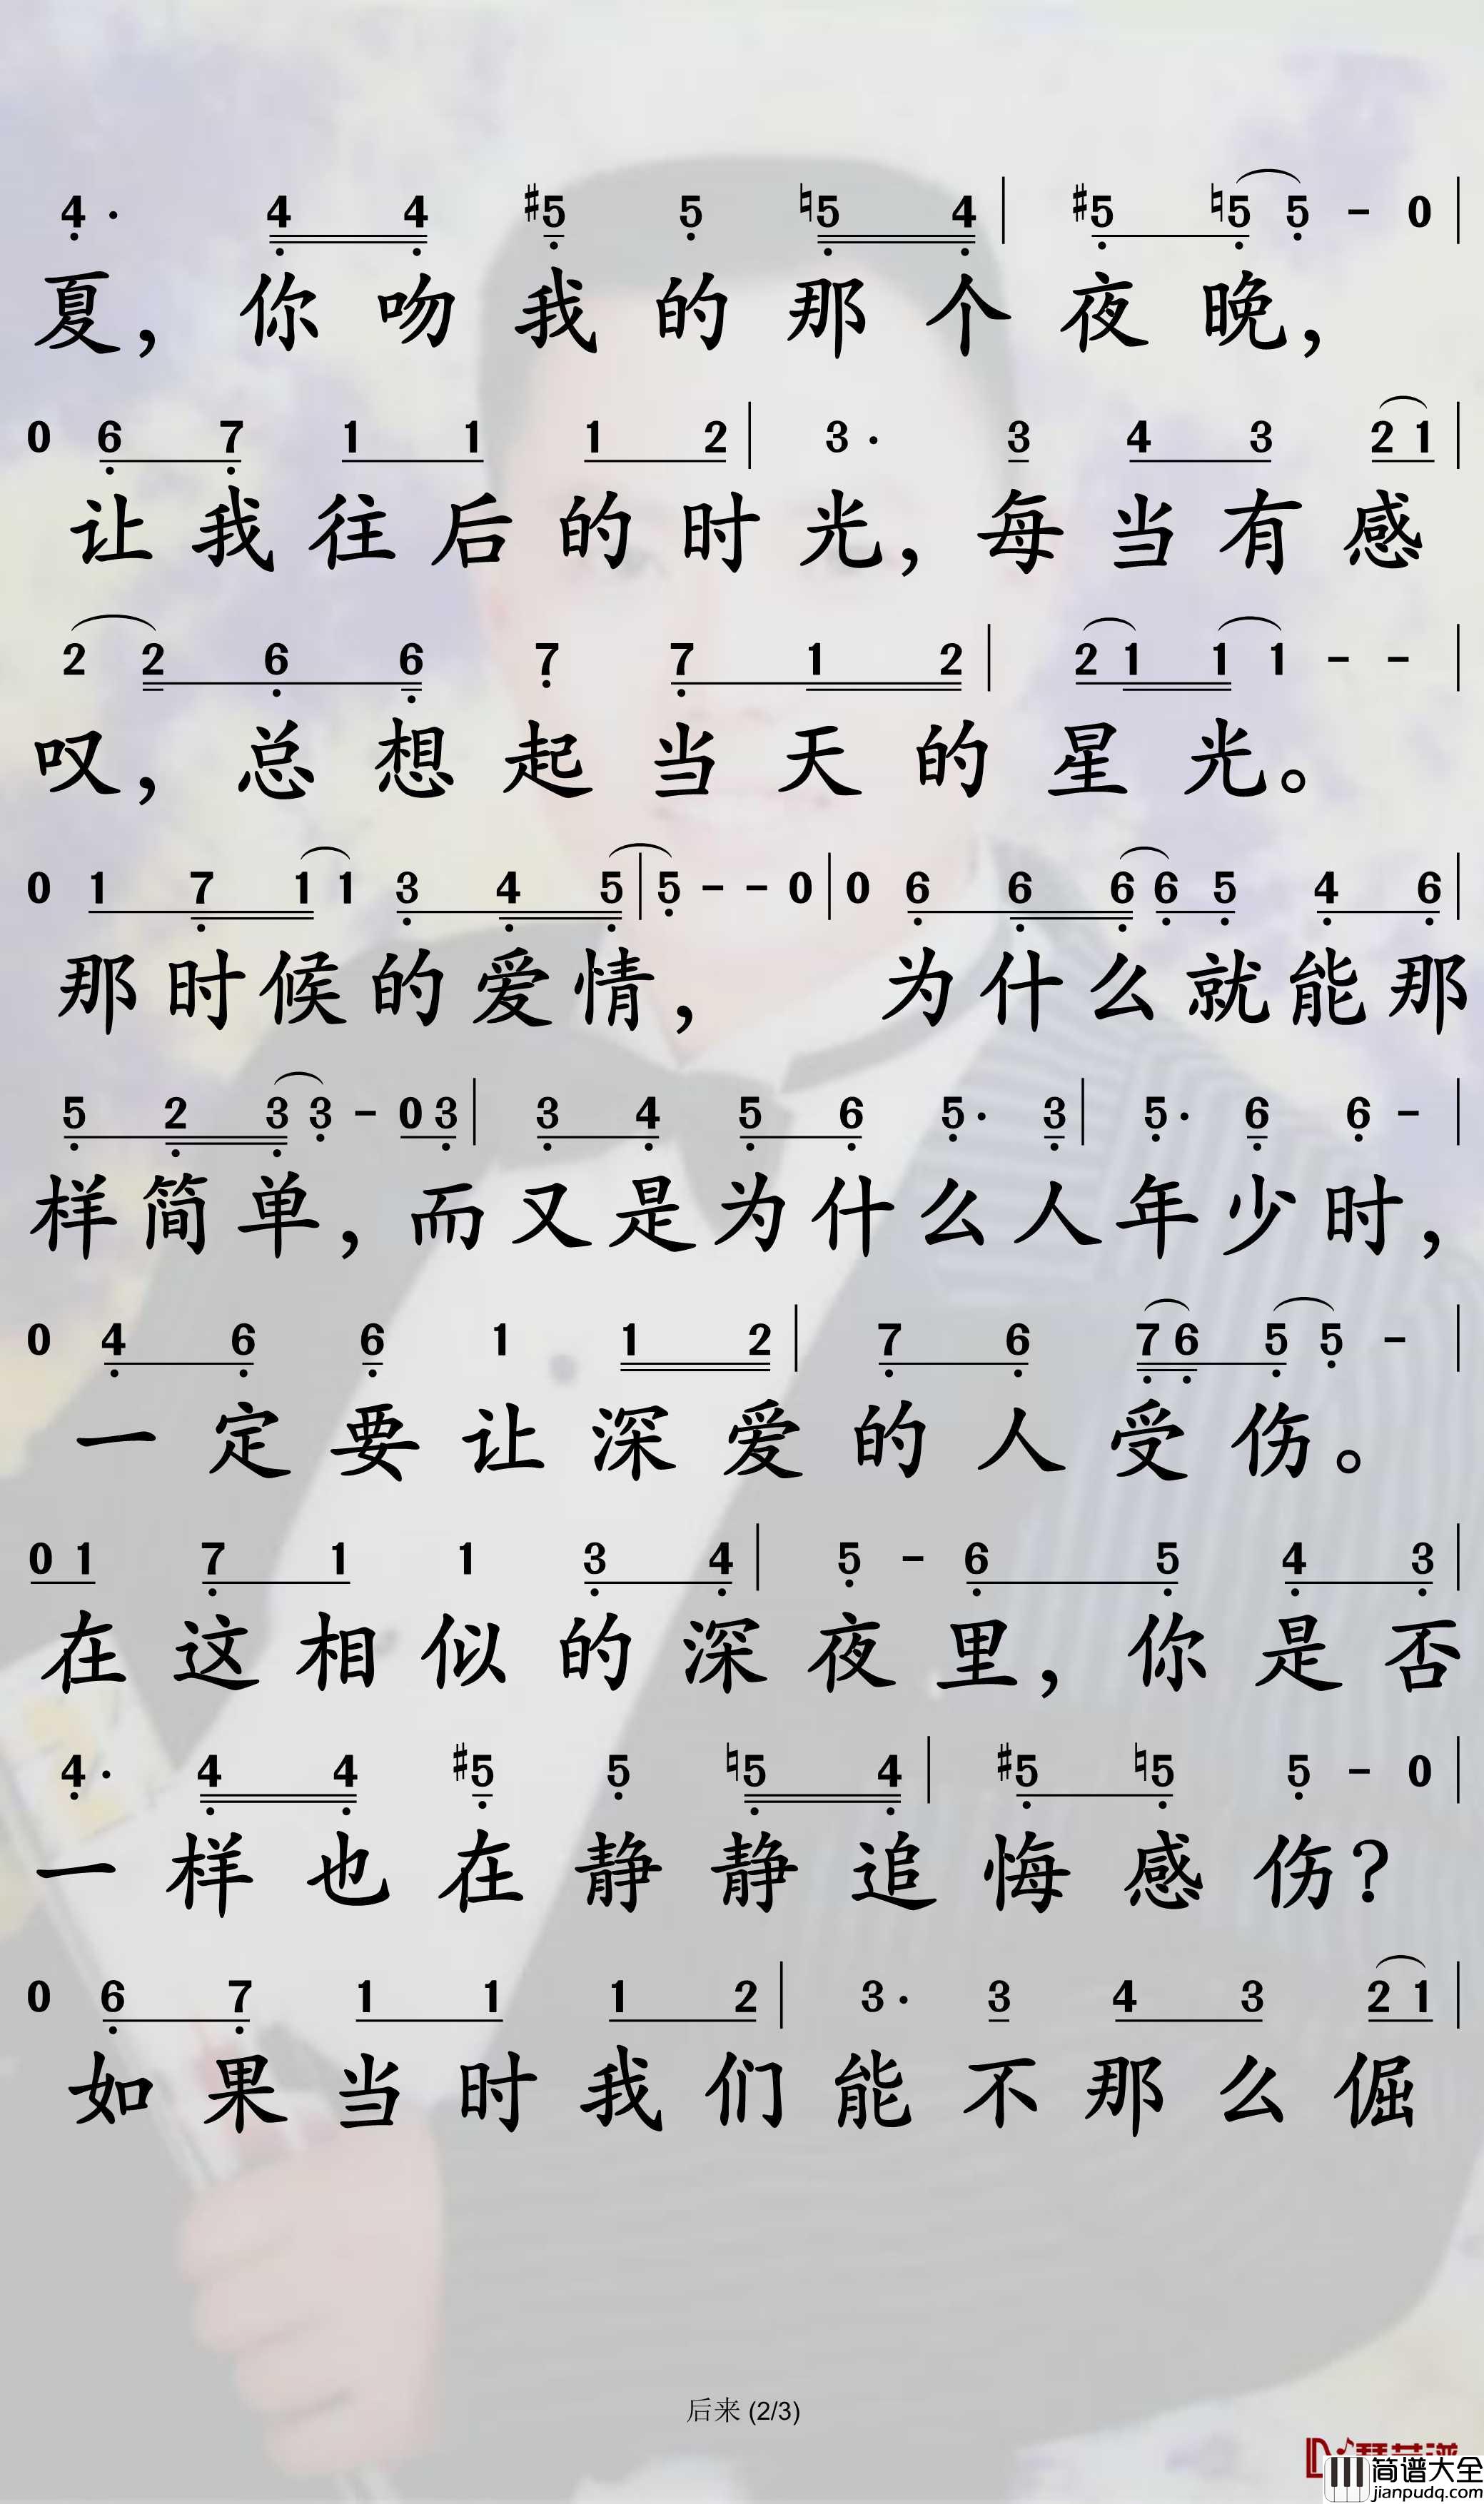 4· 4 4 #5 5 ♮5 4 | #5 ♮5 5 - 0 |
夏，你吻我的那个夜晚，
0 6 7 1 1 1 2 | 3· 3 4 3 2 1 |
让我往后的时光，每当有感
2 2 6 6 7 7 1 2 | 2 1 1 1 - - |
叹，总想起当天的星光。
0 1 7 1 1 3 4 5 | 5 - - 0 | 0 6 6 6 6 5 4 6 |
那时候的爱情，为什么就能那
5 2 3 3 - 0 3 | 3 4 5 6 5· 3 | 5· 6 6 - |
样简单，而又是为什么人年少时，
0 4 6 6 1 1 2 | 7 6 7 6 5 5 - |
一定要让深爱的人受伤。
0 1 7 1 1 3 4 | 5 - 6 5 4 3 |
在这相似的深夜里，你是否
4· 4 4 #5 5 ♮5 4 | #5 ♮5 5 - 0 |
一样也在静静追悔感伤？
0 6 7 1 1 1 2 | 3· 3 4 3 2 1 |
如果当时我们能不那么倔
后来 (2/3)
简谱大全
jianpudq.com